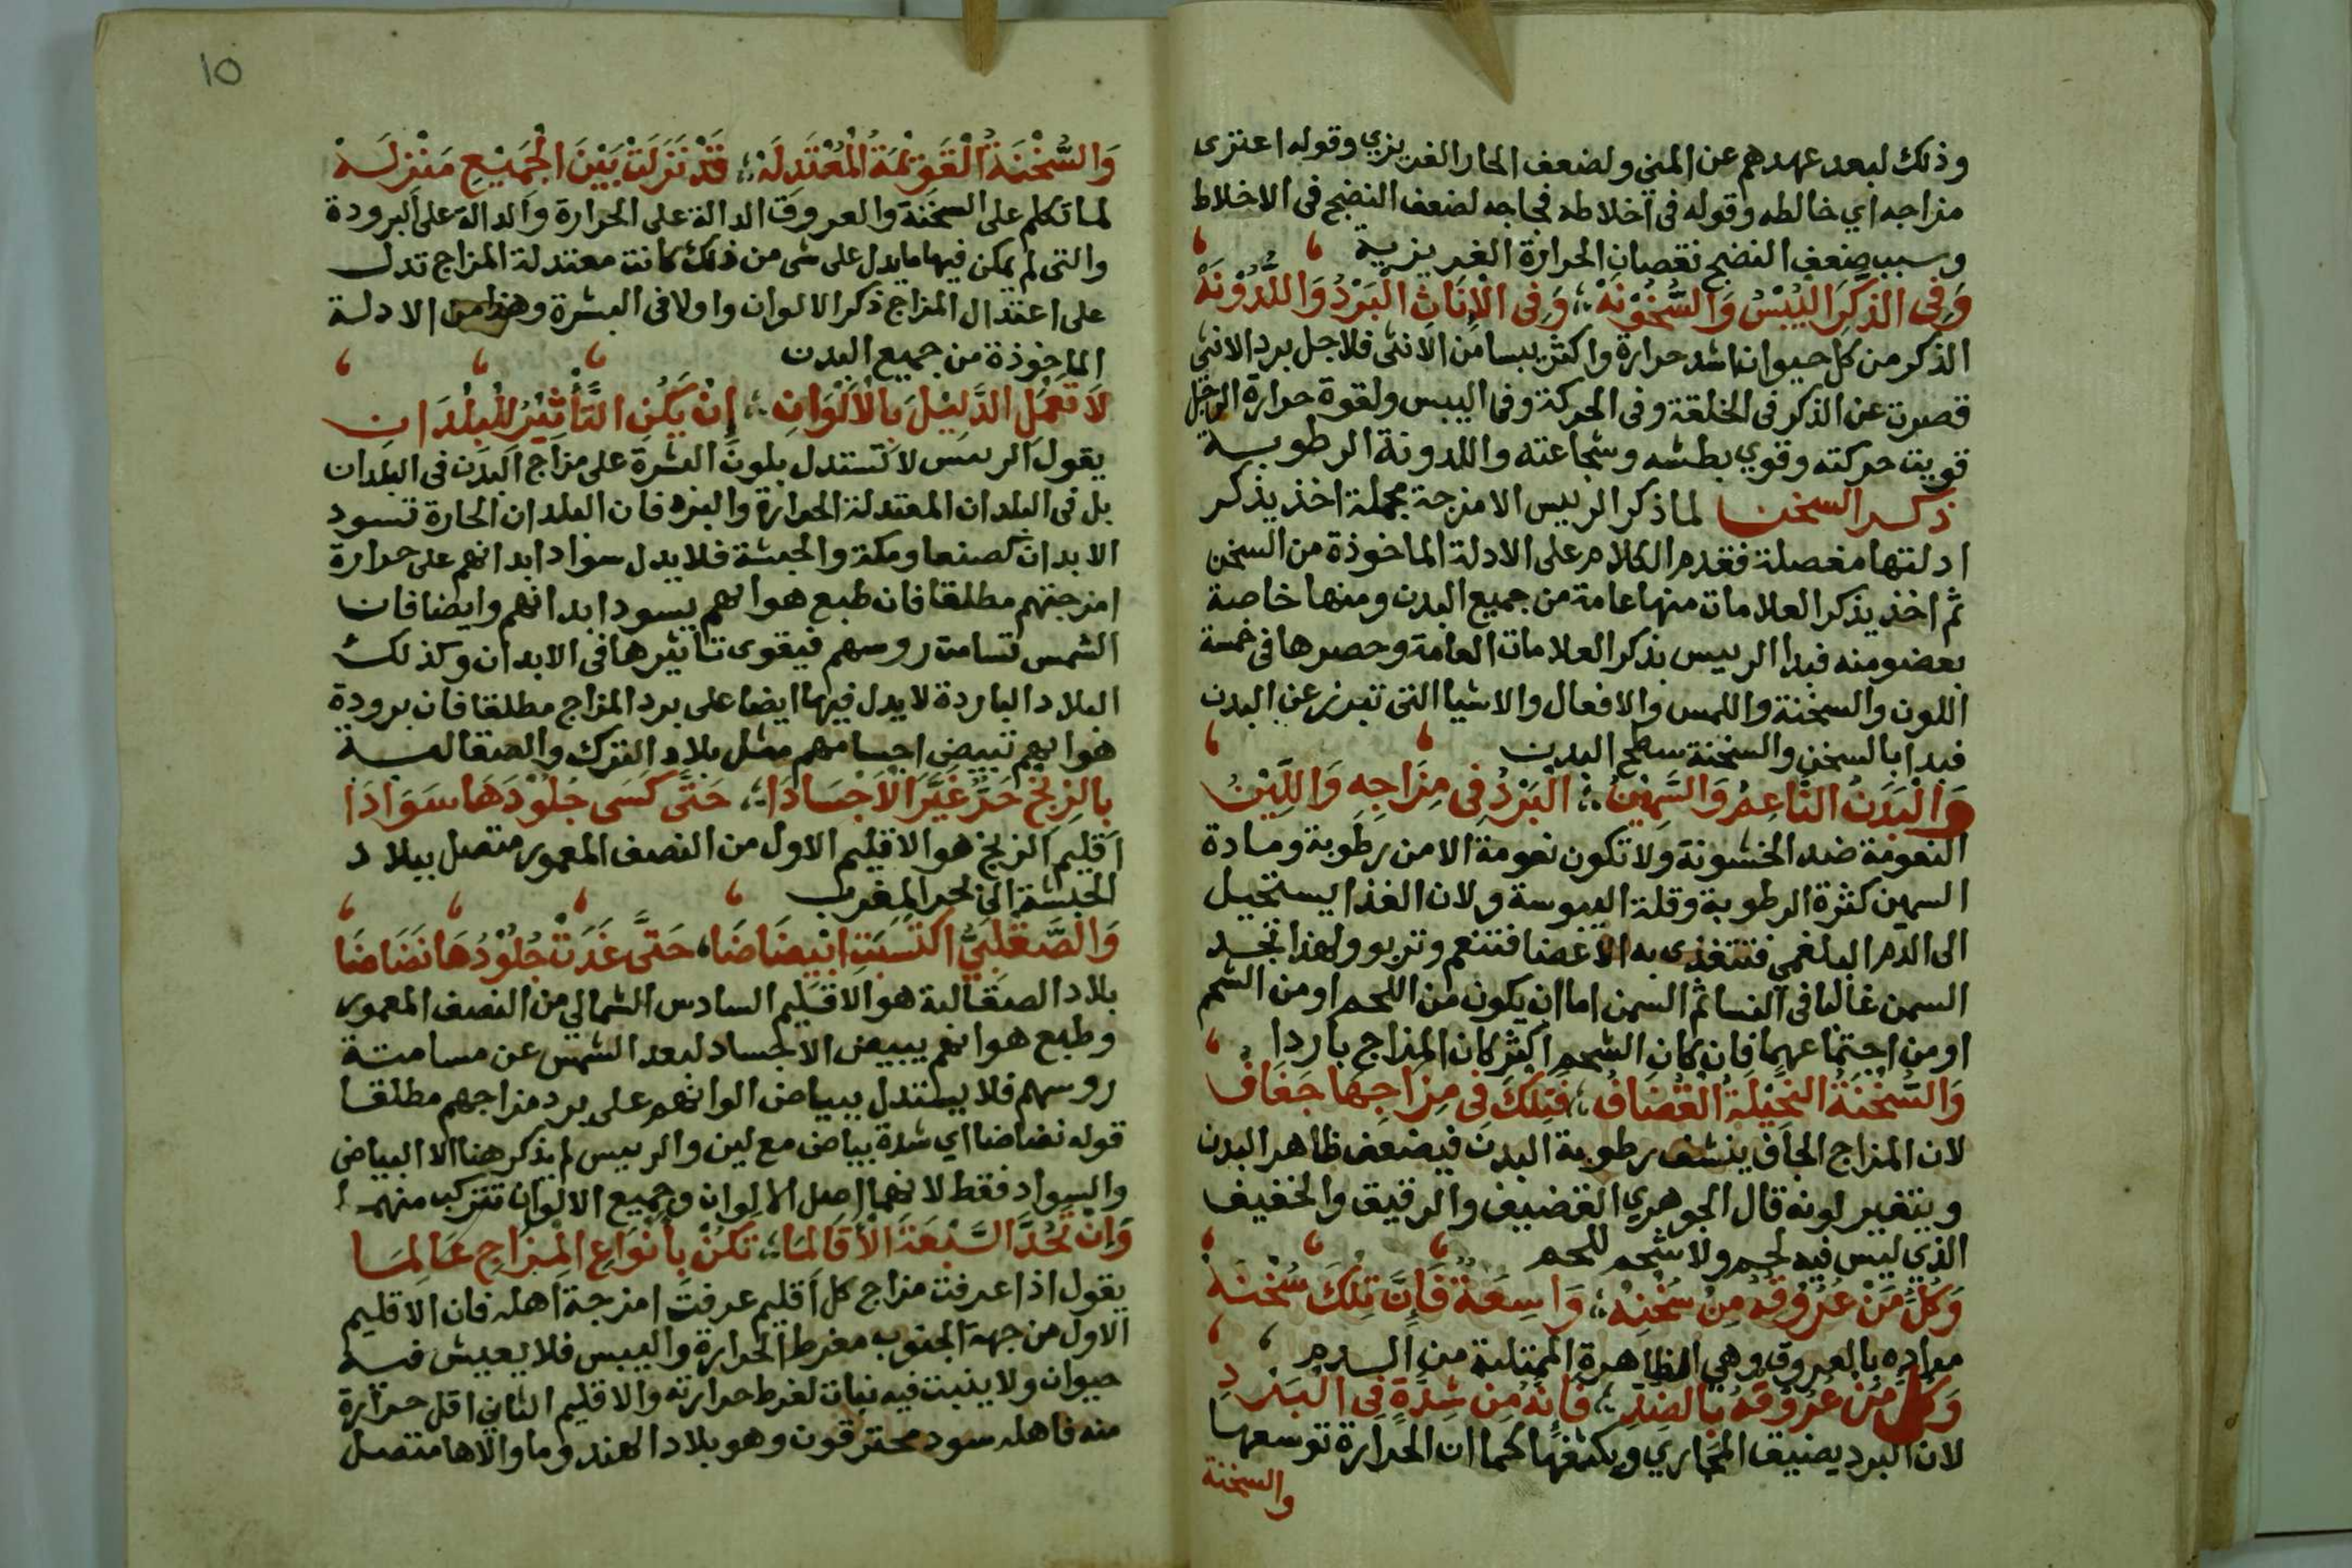 وذلك لبعد عهدهم عن المني ولضعف الحار الغريزي وقوله اعترى
مزاجه اي خالطه وقوله في اخلاطه فجاجه لضعف النضج في الاخلاط
وسبب ضعف النضج نقصان الحرارة الغريزية
وَفِي الذَّكَرِ الْيُبْسُ وَالسُّخُوْنَهْ ؛ وَفِي الْاِنَاثِ الْبَرْدُ وَاللُّدُوْنَهْ
الذكر من كل حيوان اشد حرارة واكثر يبسا من الانثى فلاجل برد الانثى
قصرت عن الذكر في الخلقة وفي الحركة وفي اليبس ولقوة حرارة الرجل
قويت حركته وقوي بطشه وشجاعته واللدونة الرطوبة
ذكر السخن لما ذكر الرييس الامزجة مجملة اخذ يذكر
ادلتها مفصلة فقدم الكلام على الادلة الماخوذة من السخن
ثم اخذ يذكر العلامات منها عامة من جميع البدن ومنها خاصة
بعضو منه فبدا الرييس بذكر العلامات العامة وحصرها في خمسة
اللون والسخنة واللمس والافعال والاشيا التي تبرز عن البدن
فبدا بالسخن والسخنة سطح البدن
وَالْبَدَنُ النَّاعِمُ وَالسَّمِيْنُ ؛ الْبَرْدُ فِي مِزَاجِهِ وَاللِّيْنُ
النعومة ضد الخشونة ولا تكون نعومة الا من رطوبة ومادة
السمين كثرة الرطوبة وقلة اليبوسة ولان الغذا يستحيل
الى الدم البلغمي فتتغذى به الاعضا فتنعم وتربو ولهذا تجد
السمن غالبا في النسا ثم السمن اما ان يكون من اللحم او من الشحم
او من اجتماعهما فان كان الشحم اكثر كان المزاج باردا
وَالسُّخْنَةُ النَّحِيْلَةُ الْقُضَافُ ؛ فَتِلْكَ فِي مِزَاجِهَا جَفَافُ
لان المزاج الجاف ينشف رطوبة البدن فيضعف ظاهر البدن
ويتغير لونه قال الجوهري القضيف والرقيق والخفيف
الذي ليس فيه لحم ولا شحم للحم
وَكُلُّ مَنْ عُرُوْقُهُ مِنْ سُخْنِهْ ؛ وَاسِعَةٌ فَاِنَّ تِلْكَ سُخْنَهْ
مراده بالعروق وهي الظاهرة الممتلية من الدم
وَكُلُّ مَنْ عُرُوْقُهُ بِالضِّدِّ ؛ فَاِنَّهُ مِنْ شِدَّةٍ فِي الْبَرْدِ
لان البرد يضيق المجاري ويكثفها كما ان الحرارة توسعها
والسخنة
١٥
وَالسُّخْنَةُ الْقَوِيْمَةُ الْمُعْتَدِلَهْ ؛ قَدْ نَزَلَتْ بَيْنَ الْجَمِيْعِ مَنْزِلَهْ
لما تكلم على السخنة والعروق الدالة على الحرارة والدالة على البرودة
والتي لم يكن فيها ما يدل على شي من ذلك كانت معتدلة المزاج تدل
على اعتدال المزاج ذكر الالوان واولا في البشرة وهذا من الادلة
الماخوذة من جميع البدن
لَا تَعْمَلِ الدَّلِيْلَ بِالْاَلْوَانِ ؛ اِنْ يَكُنِ التَّأْثِيْرُ لِلْبُلْدَانِ
يقول الرييس لا تستدل بلون البشرة على مزاج البدن في البلدان
بل في البلدان المعتدلة الحرارة والبرد فان البلدان الحارة تسود
الابدان كصنعا ومكة والحبشة فلا يدل سواد ابدانهم على حرارة
امزجتهم مطلقا فان طبع هوايهم يسود ابدانهم وايضا فان
الشمس تسامت روسهم فيقوى تاثيرها في الابدان وكذلك
البلاد الباردة لا يدل فيها ايضا على برد المزاج مطلقا فان برودة
هوايهم تبيض اجسامهم مثل بلاد الترك والصقالبة
بِالزِّنْجِ حَرٌّ غَيَّرَ الْاَجْسَادَا ؛ حَتَّى كَسَى جُلُوْدَهَا سَوَادَا
اقليم الزنج هو الاقليم الاول من النصف المعمور متصل ببلاد
الحبشة الى بحر المغرب
وَالصَّقْلَبِيُّ اكْتَسَبَتِ ابْيِضَاضَا ؛ حَتَّى غَدَتْ جُلُوْدُهَا نَضَاضَا
بلاد الصقالبة هو الاقليم السادس الشمالي من النصف المعمور
وطبع هوايهم يبيض الاجساد لبعد الشمس عن مسامتة
روسهم فلا يستدل ببياض الوانهم على برد مزاجهم مطلقا
قوله نضاضا اي شدة بياض مع لين والرييس لم يذكر هنا الا البياض
والسواد فقط لانهما اصل الالوان وجميع الالوان تتركب منهما
وَاِنْ تَحُدَّ السَّبْعَةَ الْاَقَالِمَا ؛ تَكُنْ بِأَنْوَاعِ الْمِزَاجِ عَالِمَا
يقول اذا عرفت مزاج كل اقليم عرفت امزجة اهله فان الاقليم
الاول من جهة الجنوب مفرط الحرارة واليبس فلا يعيش فيه
حيوان ولا ينبت فيه نبات لفرط حرارته والاقليم الثاني اقل حرارة
منه فاهله سود محترقون وهو بلاد الهند وما والاها متصل